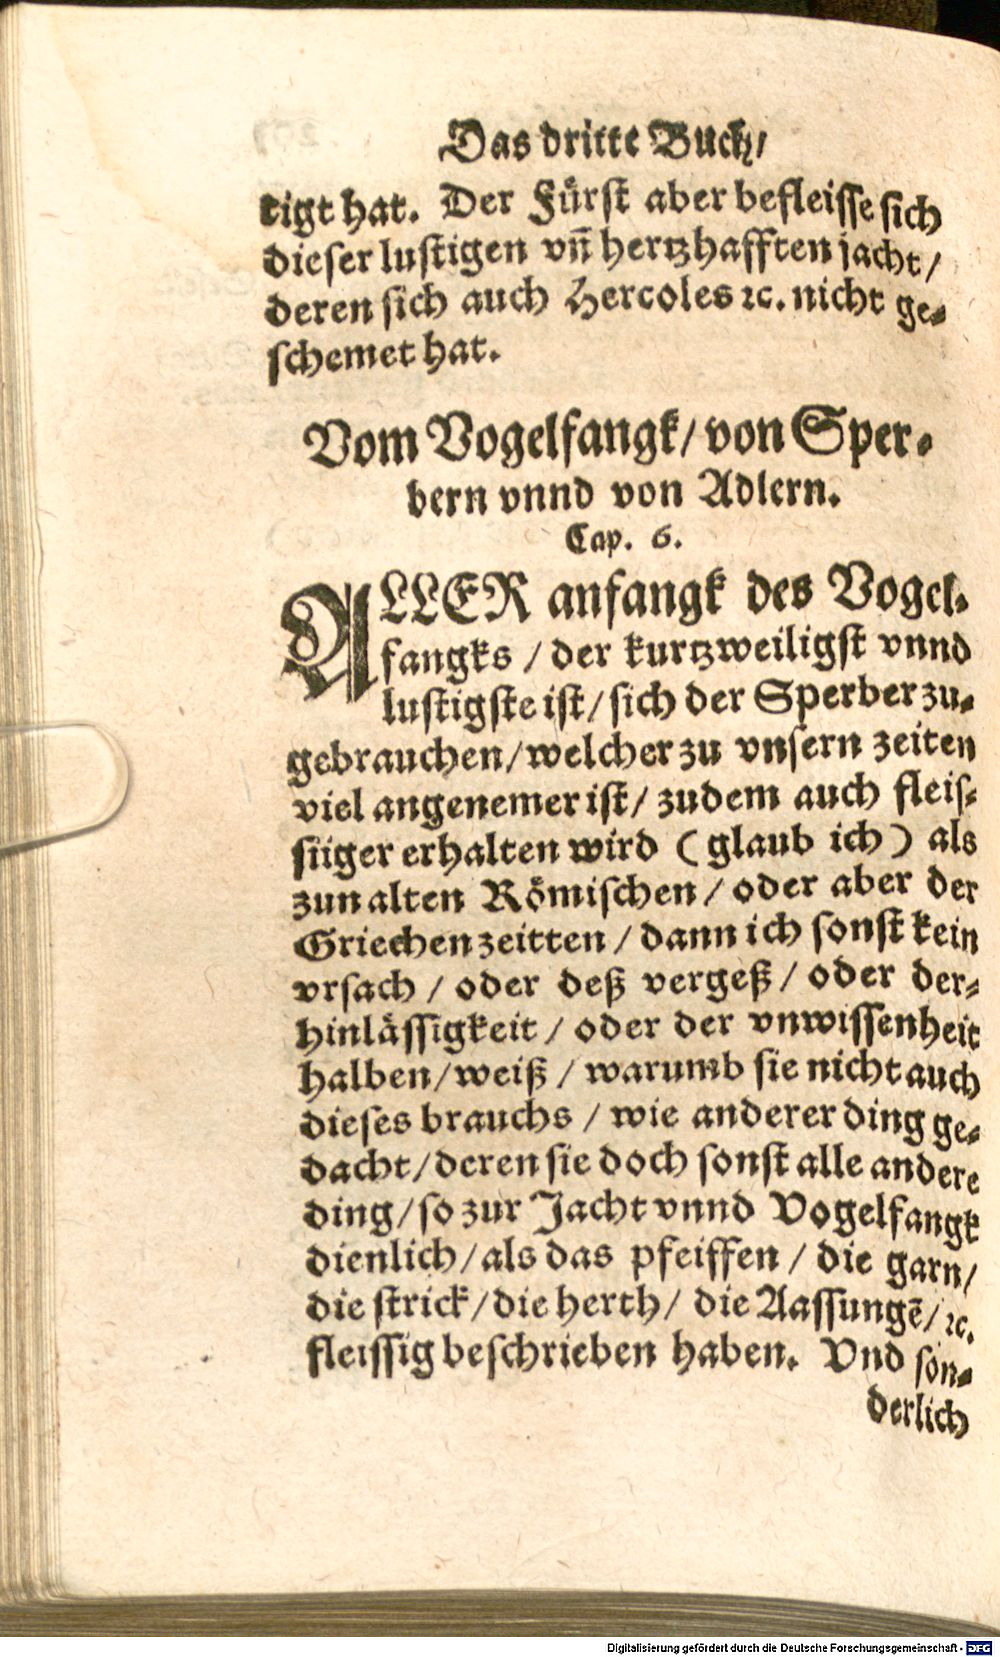 Das dritte Buch/
tigt hat. Der Fürst aber befleisse sich
dieser lustigen vn̄ hertzhafften jacht/
deren sich auch Hercoles ꝛc. nicht ge-
schemet hat.
Vom Vogelfangk/ von Sper-
bern vnnd von Adlern.
Cap. 6.
ALLER anfangk des Vogel-
fangks / der kurtzweiligst vnnd
lustigste ist/ sich der Sperber zu-
gebrauchen/ welcher zu vnsern zeiten
viel angenemer ist/ zudem auch fleis-
siiger erhalten wird ( glaub ich ) als
zun alten Römischen / oder aber der
Griechen zeitten / dann ich sonst kein
vrsach / oder deß vergeß / oder der-
hinlässigkeit / oder der vnwissenheit
halben/ weiß / warumb sie nicht auch
dieses brauchs / wie anderer ding ge-
dacht/ deren sie doch sonst alle andere
ding/ so zur Jacht vnnd Vogelfangk
dienlich/ als das pfeiffen / die garn/
die strick/ die herth/ die Aassungē/ ꝛc.
fleissig beschrieben haben. Vnd son-
derlich
Digitalisierung gefördert durch die Deutsche Forschungsgemeinschaft - DFG